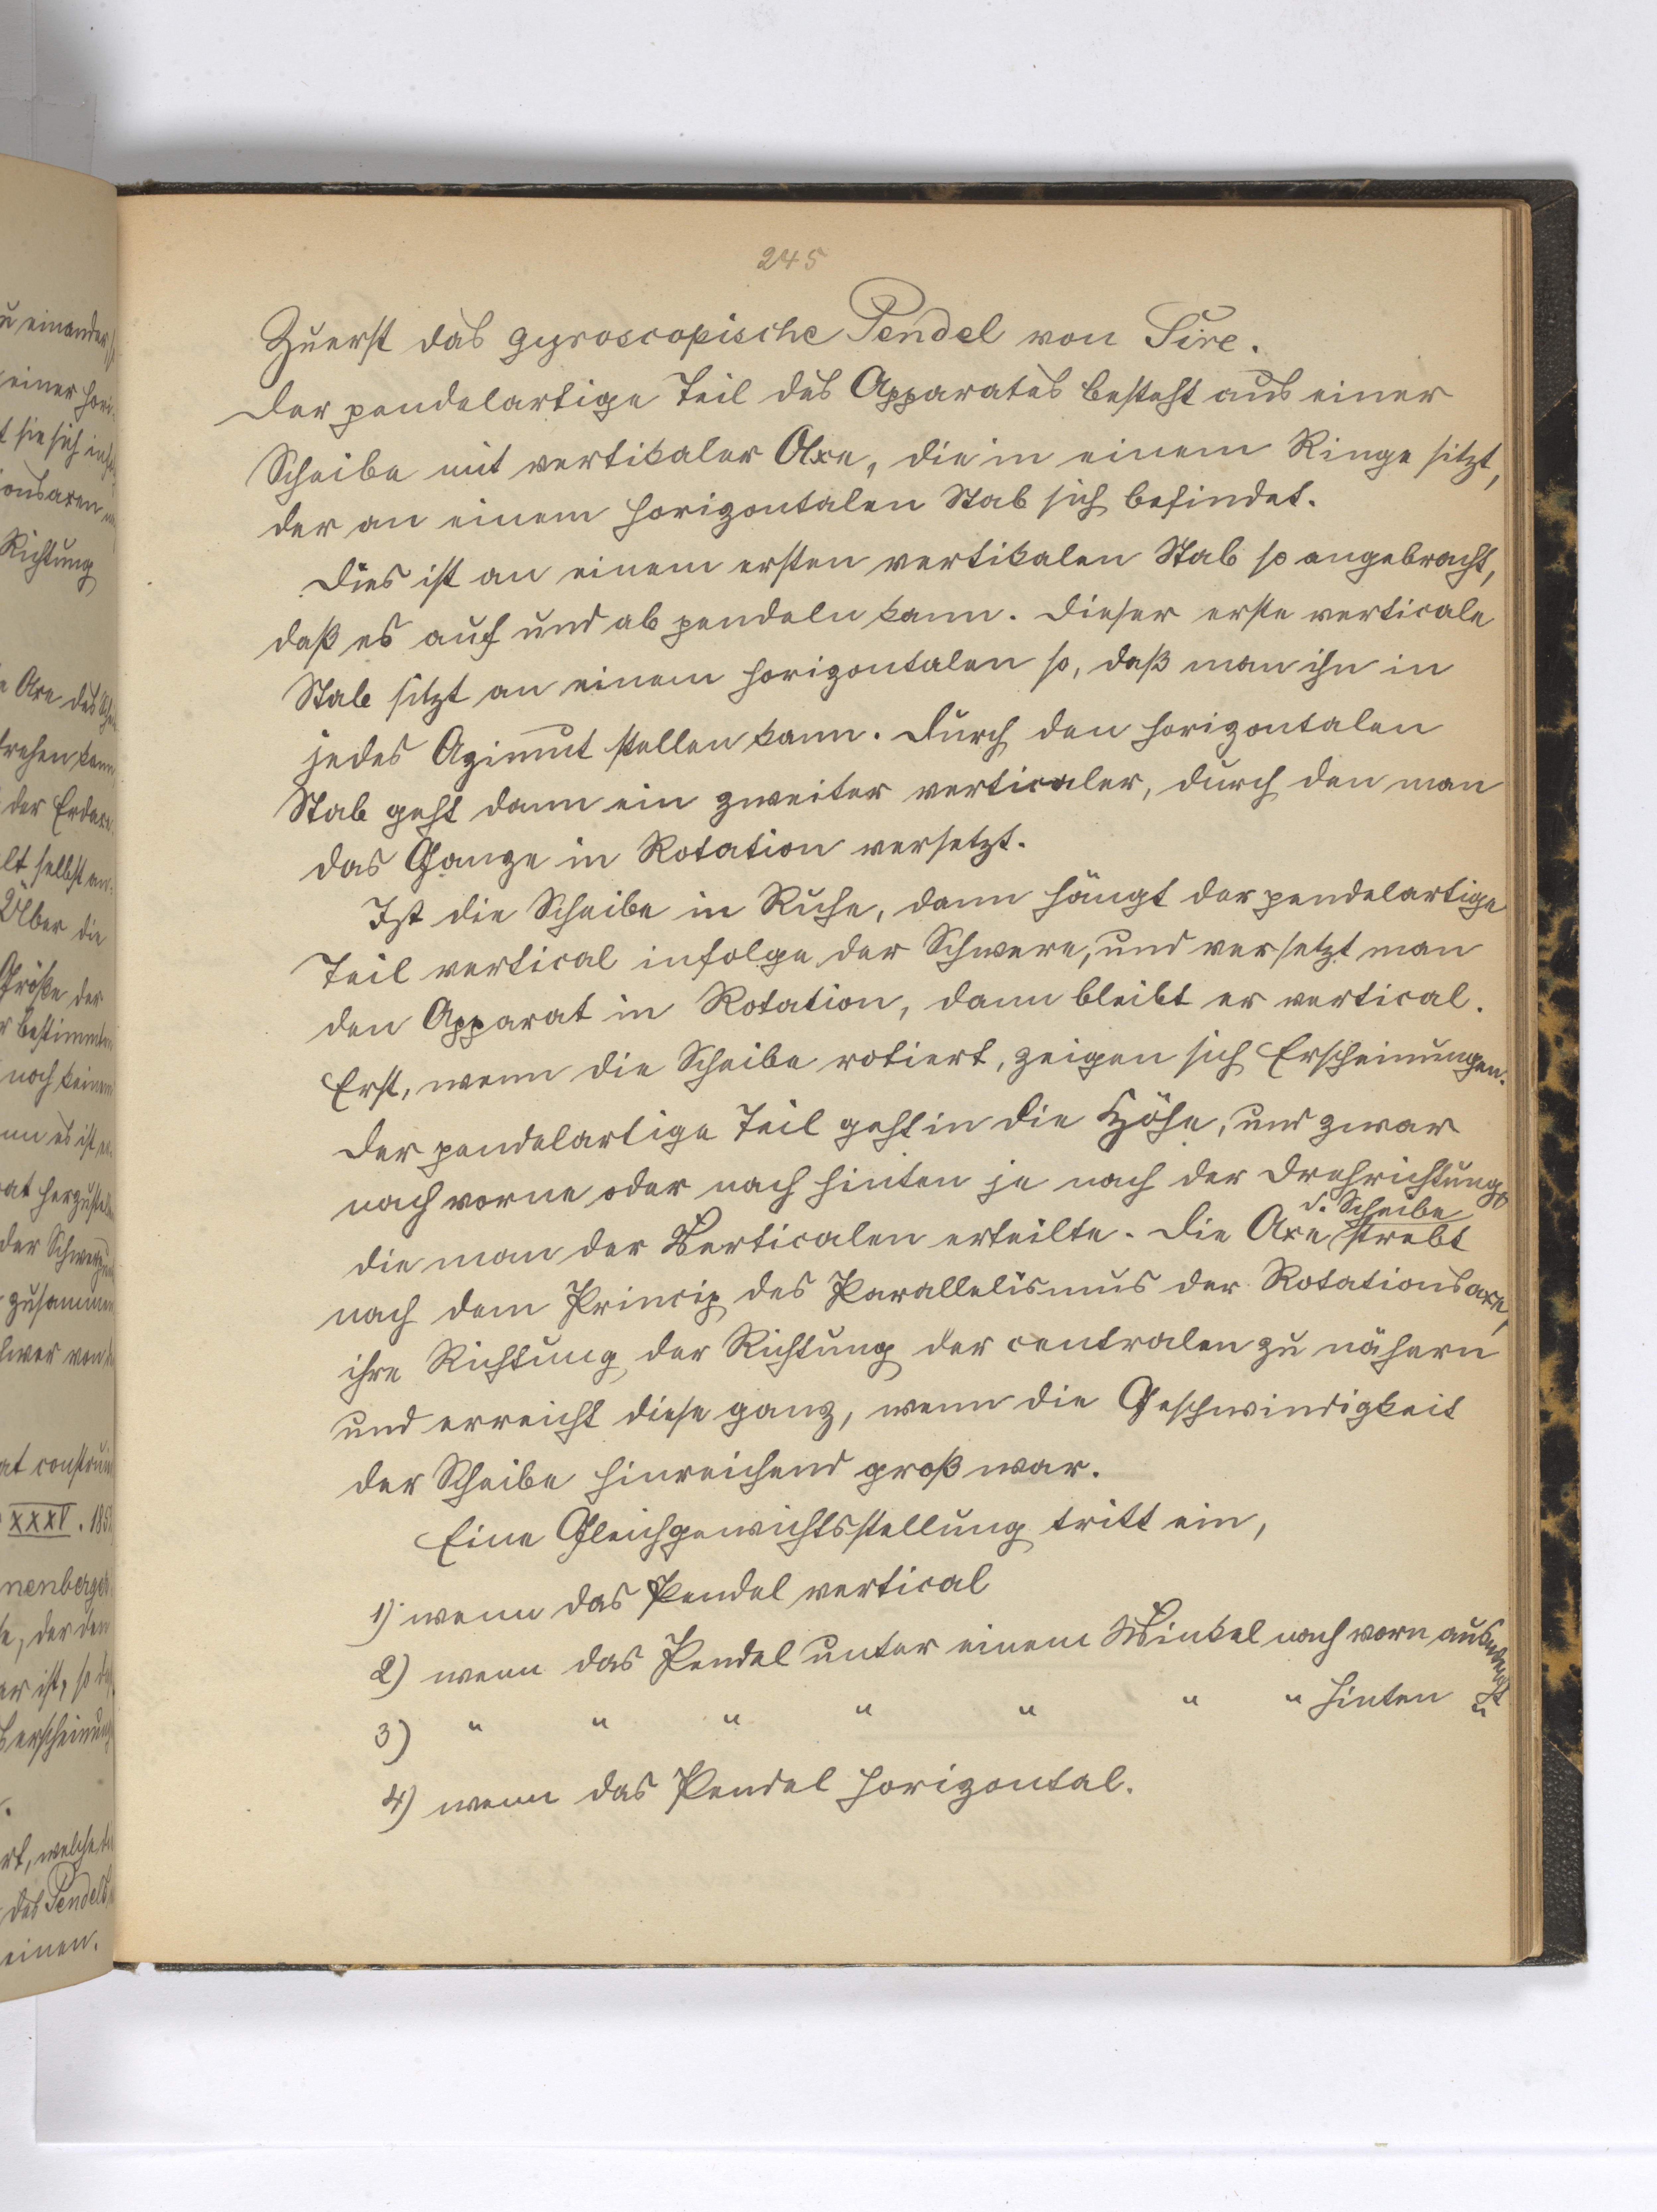 245
Zuerst das gyroscopische Pendel von Sire.
Der pendelartige Teil des Apparates besteht aus einer
Scheibe mit vertikaler Axe, die in einem Ringe sitzt,
der an einem horizontalen Stab sich befindet.
Dies ist an einem ersten vertikalen Stab so angebracht,
daß es auf und ab pendeln kann. Dieser erste verticale
Stab sitzt an einem horizontalen so, daß man ihn in
jedes Azimut stellen kann. Durch den horizontalen
Stab geht dann ein zweiter verticaler, durch den man
das Ganze in Rotation versetzt.
Ist die Scheibe in Ruhe, dann hängt der pendelartige
Teil vertical infolge der Schwere, und versetzt man
den Apparat in Rotation, dann bleibt er vertical.
Erst, wenn die Scheibe rotiert, zeigen sich Erscheinungen.
Der pendelartige Teil geht in die Höhe, und zwar
nach vorne oder nach hinten je nach der Drehrichtung,
d. Scheibe
die man der Verticalen erteilte. Die Axe strebt
nach dem Princip des Parallelismus der Rotationsaxe,
ihre Richtung der Richtung der centralen zu nähern
und erreicht diese ganz, wenn die Geschwindigkeit
der Scheibe hinreichend groß war.
Eine Gleichgewichtsstellung tritt ein,
1) wenn das Pendel vertical
2) wenn das Pendel unter einem Winkel nach vorn ausweicht
3) " " " " " " " hinten "
4) wenn das Pendel horizontal.
u einander,
einer hori-
t sie sich
onsaxen
Richtung
Axe des
drehen kann
der Erdaxe
lt selbst an-
Über die
Größe der
r bestimmten
noch keinen
nn es ist
at herzustellen
der
zusammen
hwer von
at construiert
XXXV. 185
nenberger
e, der den
er ist, so
erscheinung
rt, welche
das Pendel
einen.